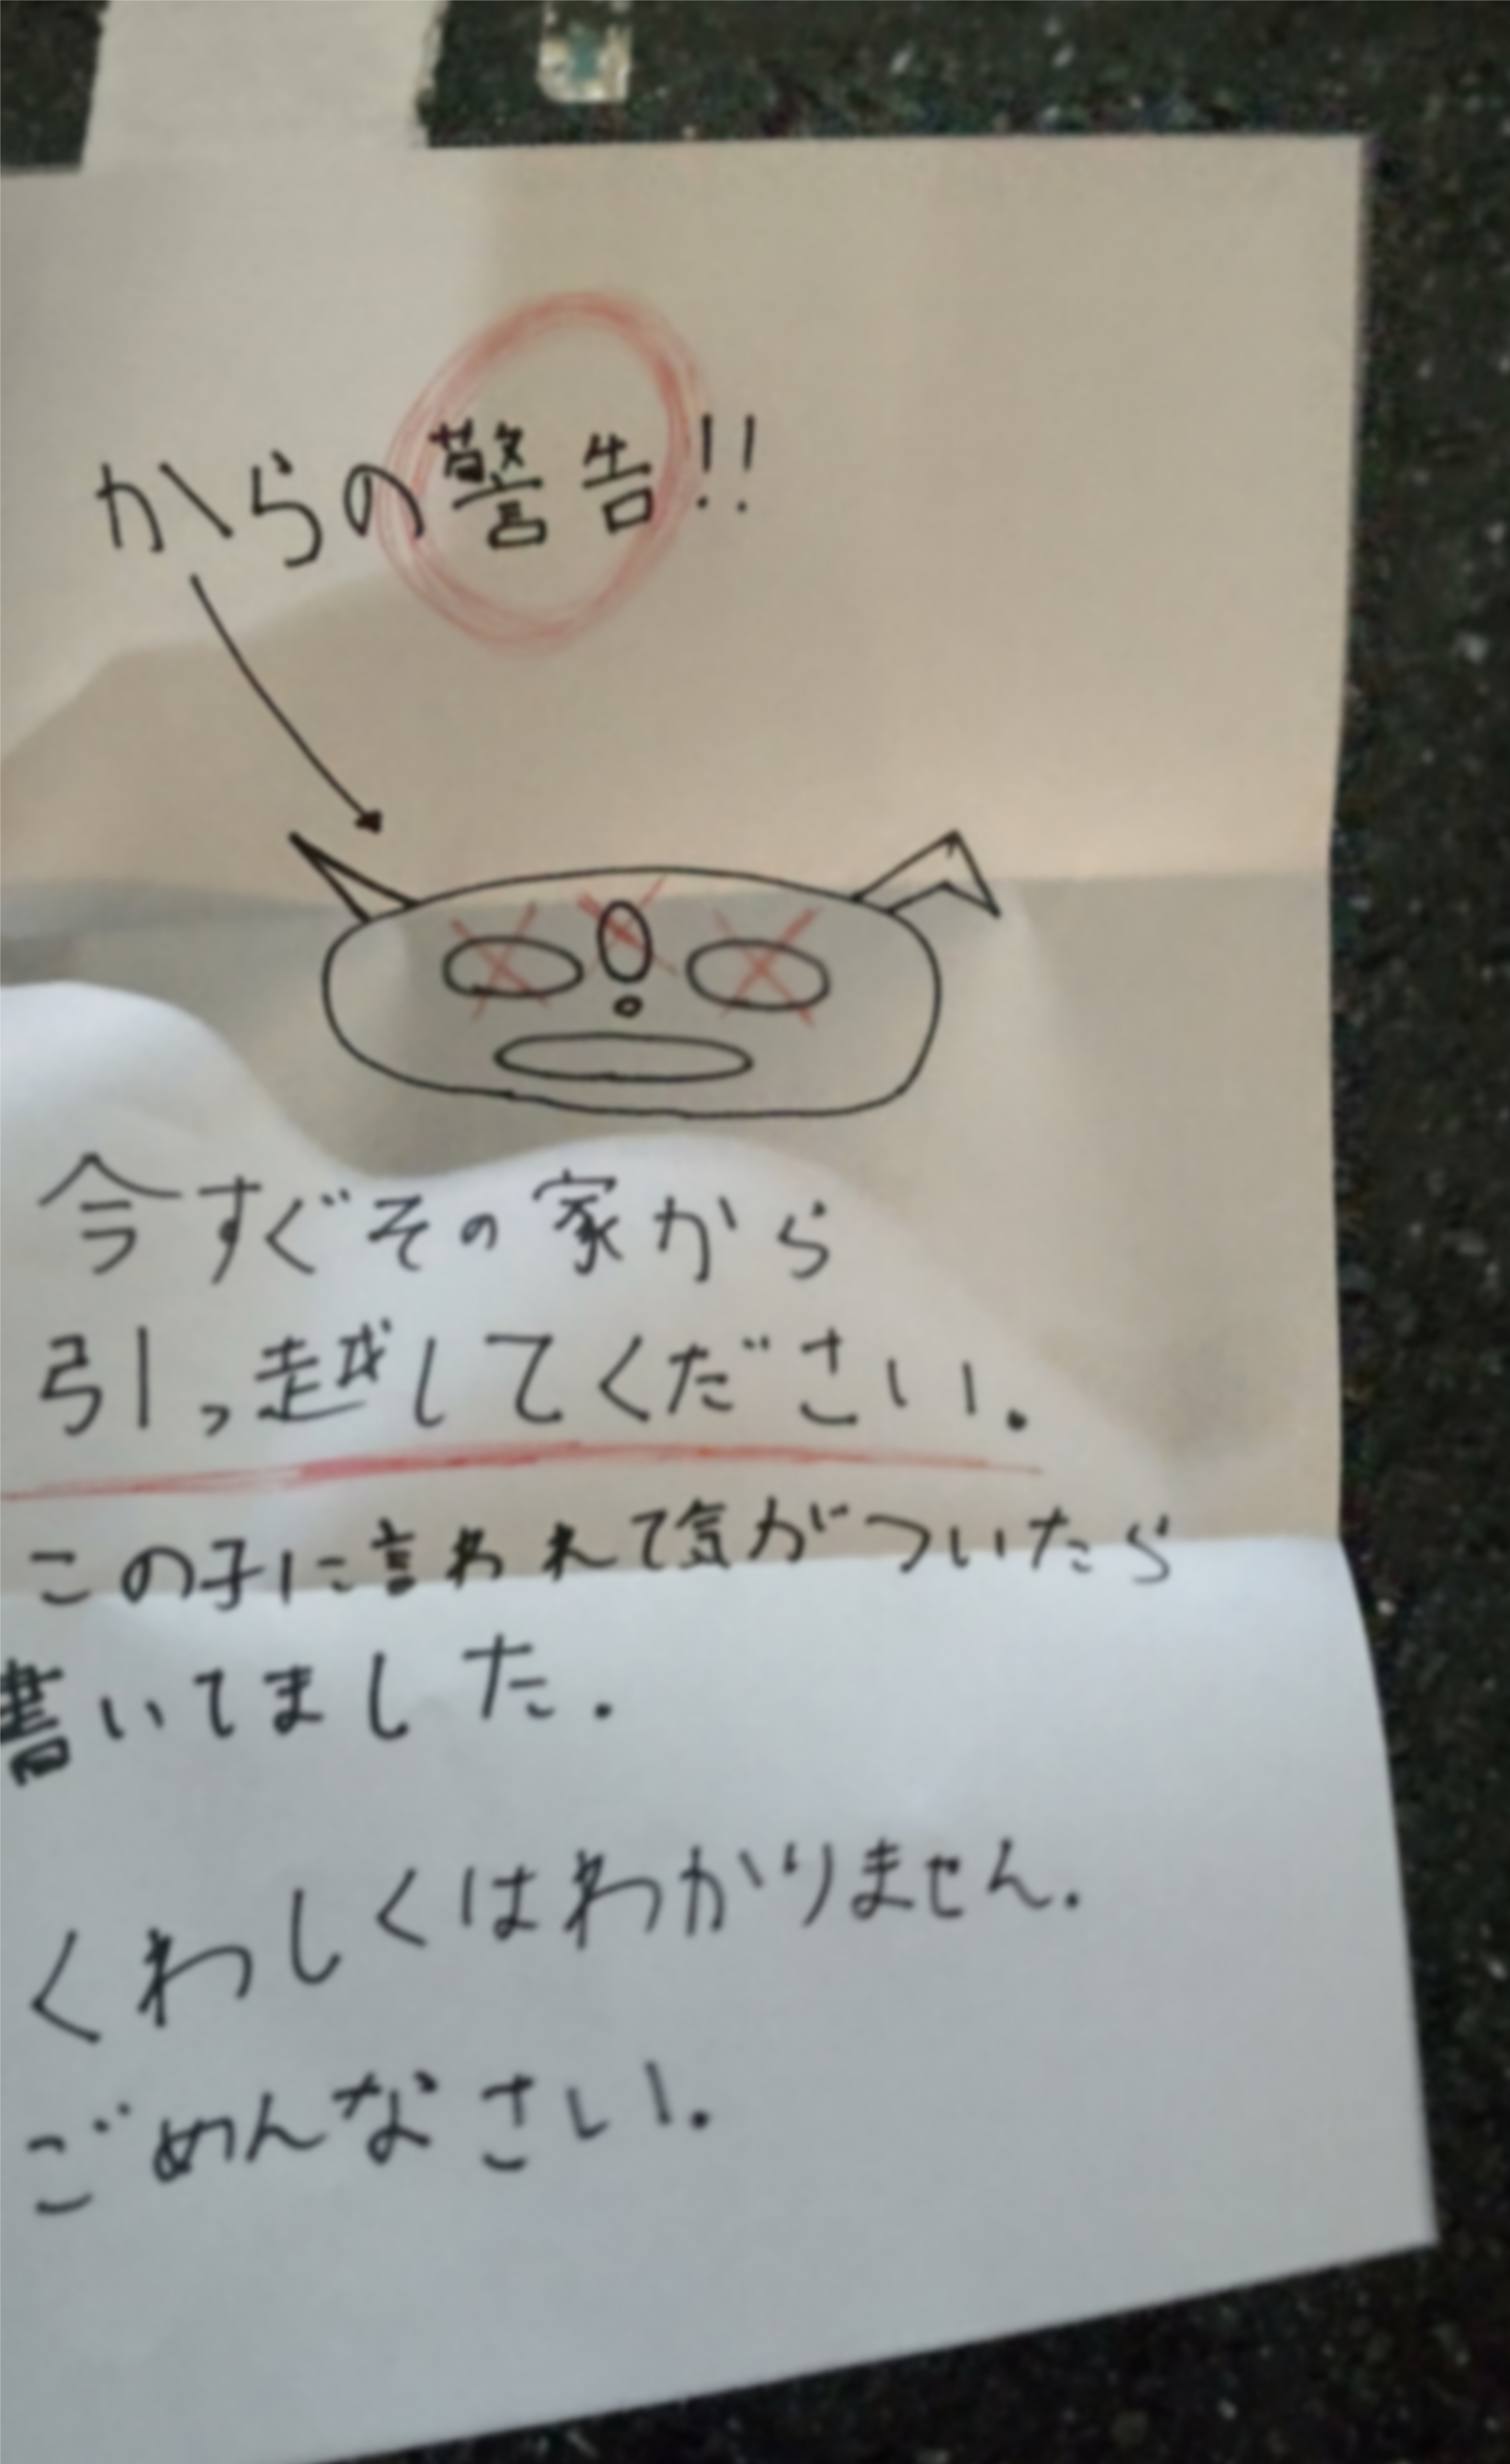 からの警告!!
今すぐその家から
引っ越してください。
この子に言われて気がついたら
書いてました.
くわしくはわかりません.
ごめんなさい.